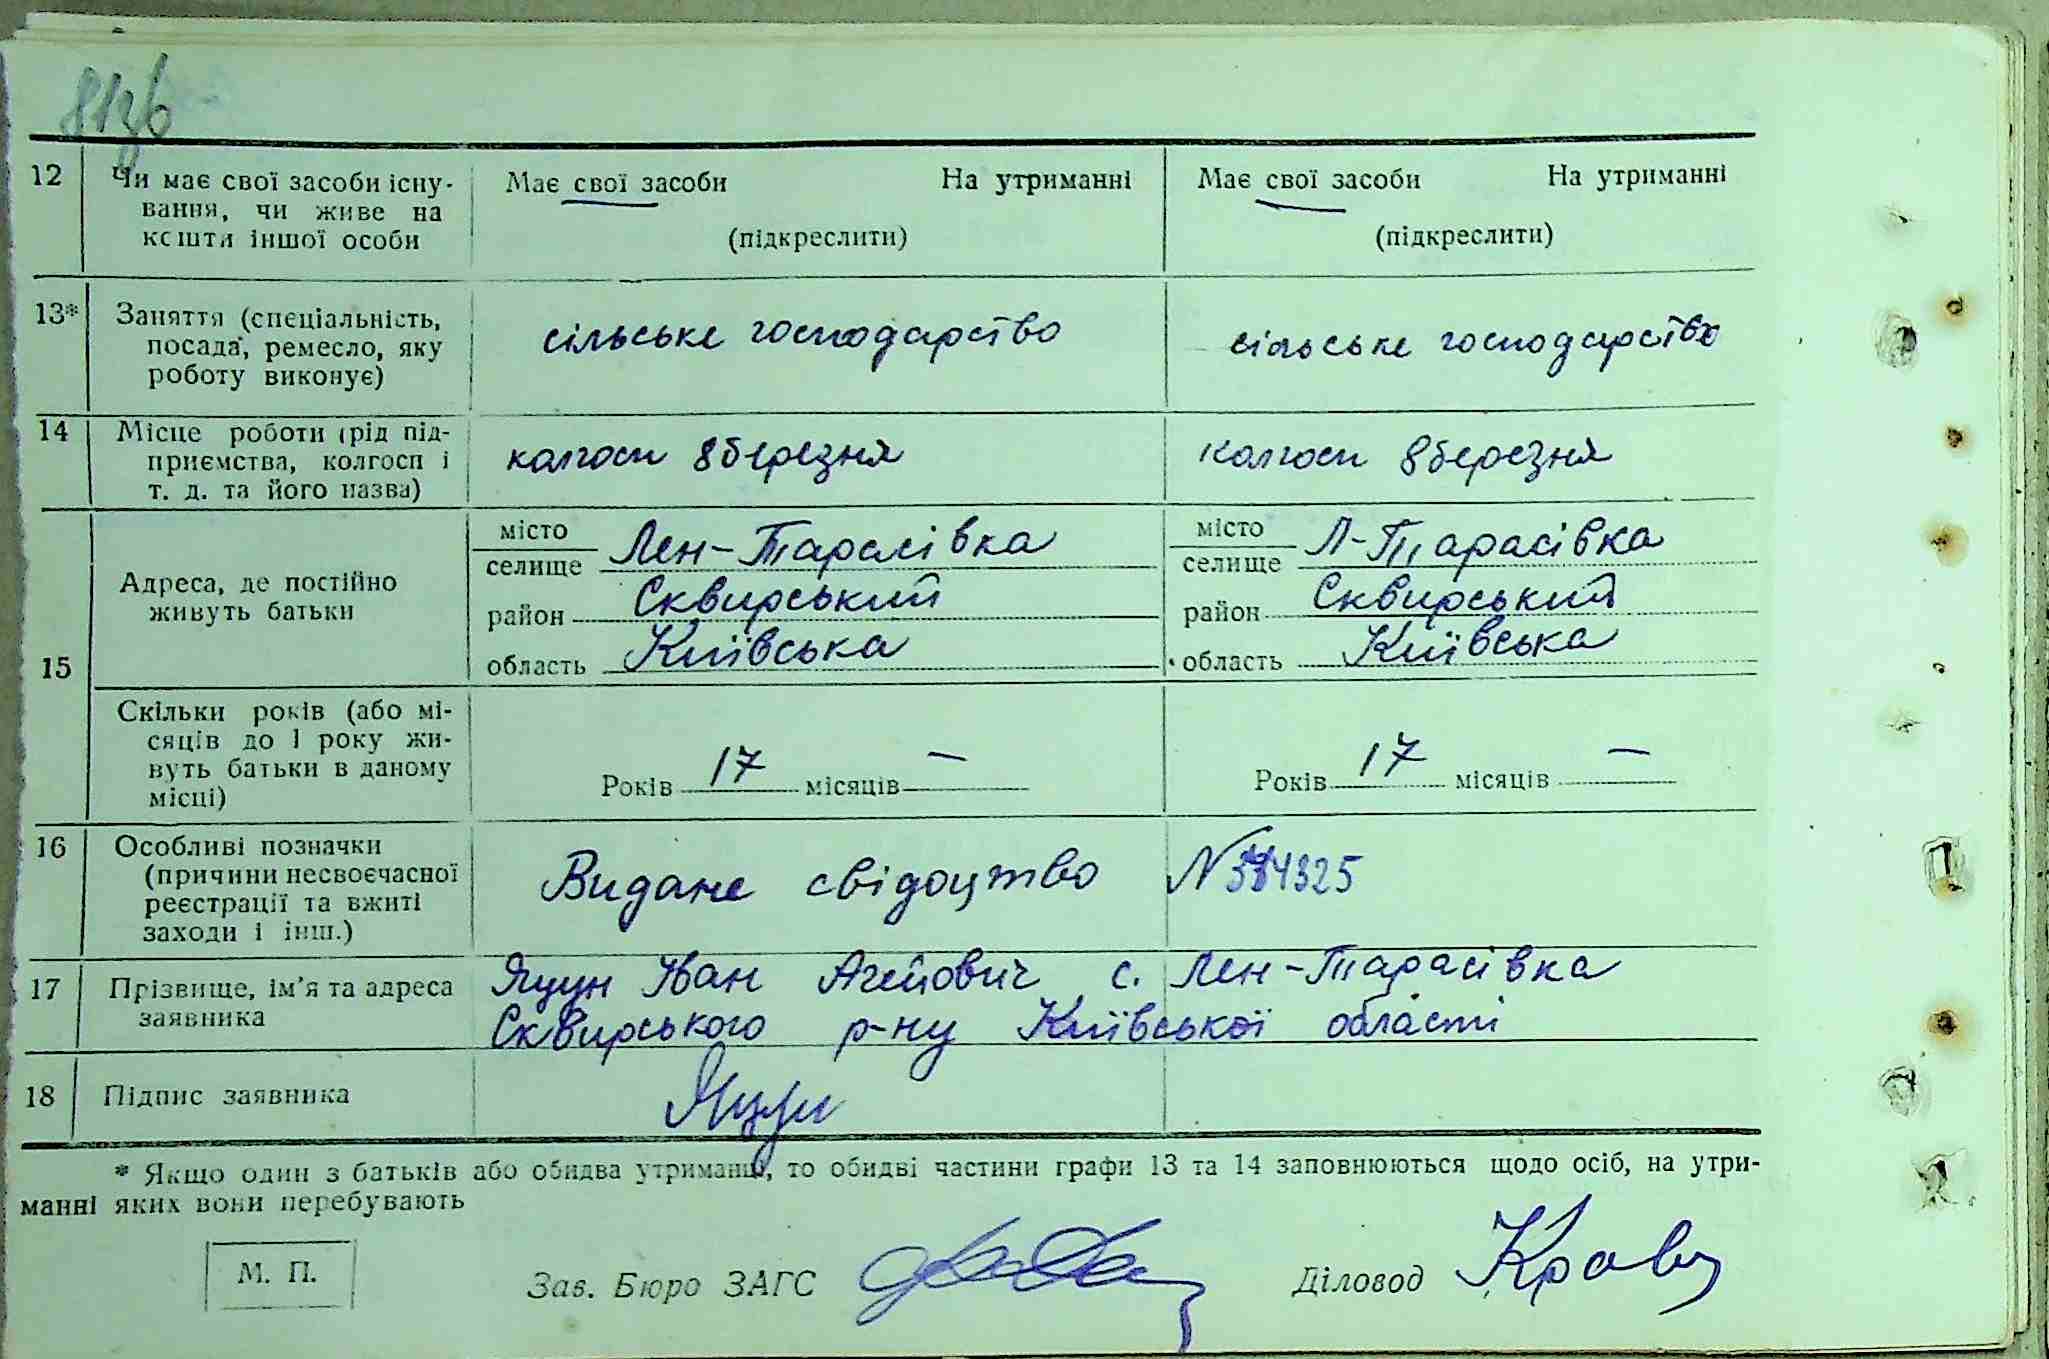 12 Чи має свої засоби існу- Має свої засоби На утриманні Має свої засоби На утриманні
вання, чи живе на
кошти іншої особи (підкреслити) (підкреслити)
13* Заняття (спеціальність,
посада, ремесло, яку сільське господарство сільське господарство
роботу виконує)
14 Місце роботи (рід під-
приємства, колгосп і колгосп 8 березня колгосп 8 березня
т. д. та його назва)
місто Лен-Тарасівка місто Л-Тарасівка
селище селище
15 Адреса, де постійно
живуть батьки район Сквирський район Сквирський
область Київська область Київська
Скільки років (або мі-
сяців до 1 року жи-
вуть батьки в даному Років 17 місяців — Років 17 місяців —
місці)
16 Особливі позначки
(причини несвоєчасної Видане свідоцтво N
реєстрації та вжиті
заходи і інш.)
17 Прізвище, ім'я та адреса Яцун Іван Агейович с. Лен-Тарасівка
заявника Сквирського р-ну Київської області
18 Підпис заявника Яцун
* Якщо один з батьків або обидва утриманці, то обидві частини графи 13 та 14 заповнюються щодо осіб, на утри-
манні яких вони перебувають
М. П. Зав. Бюро ЗАГС Діловод